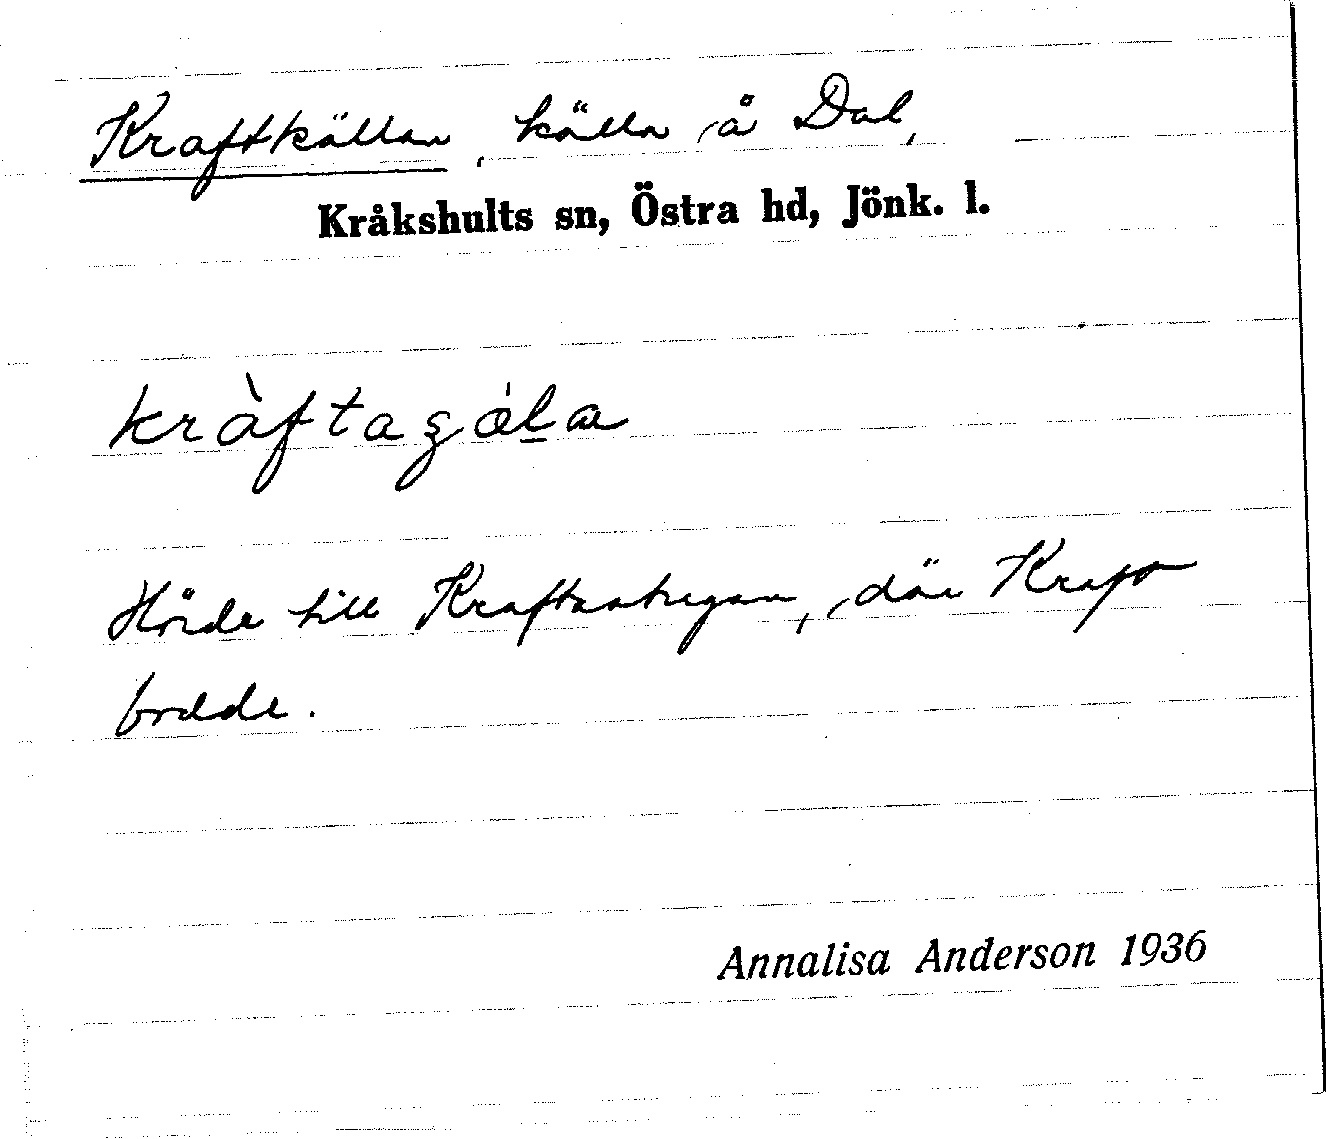 Kraftkällan, källa å Dal,
Kråkshults sn, Östra hd, Jönk. l.
kràftagǽla
Hörde till Kraftastugan, där Kraft
bodde.
Annalisa Anderson 1936